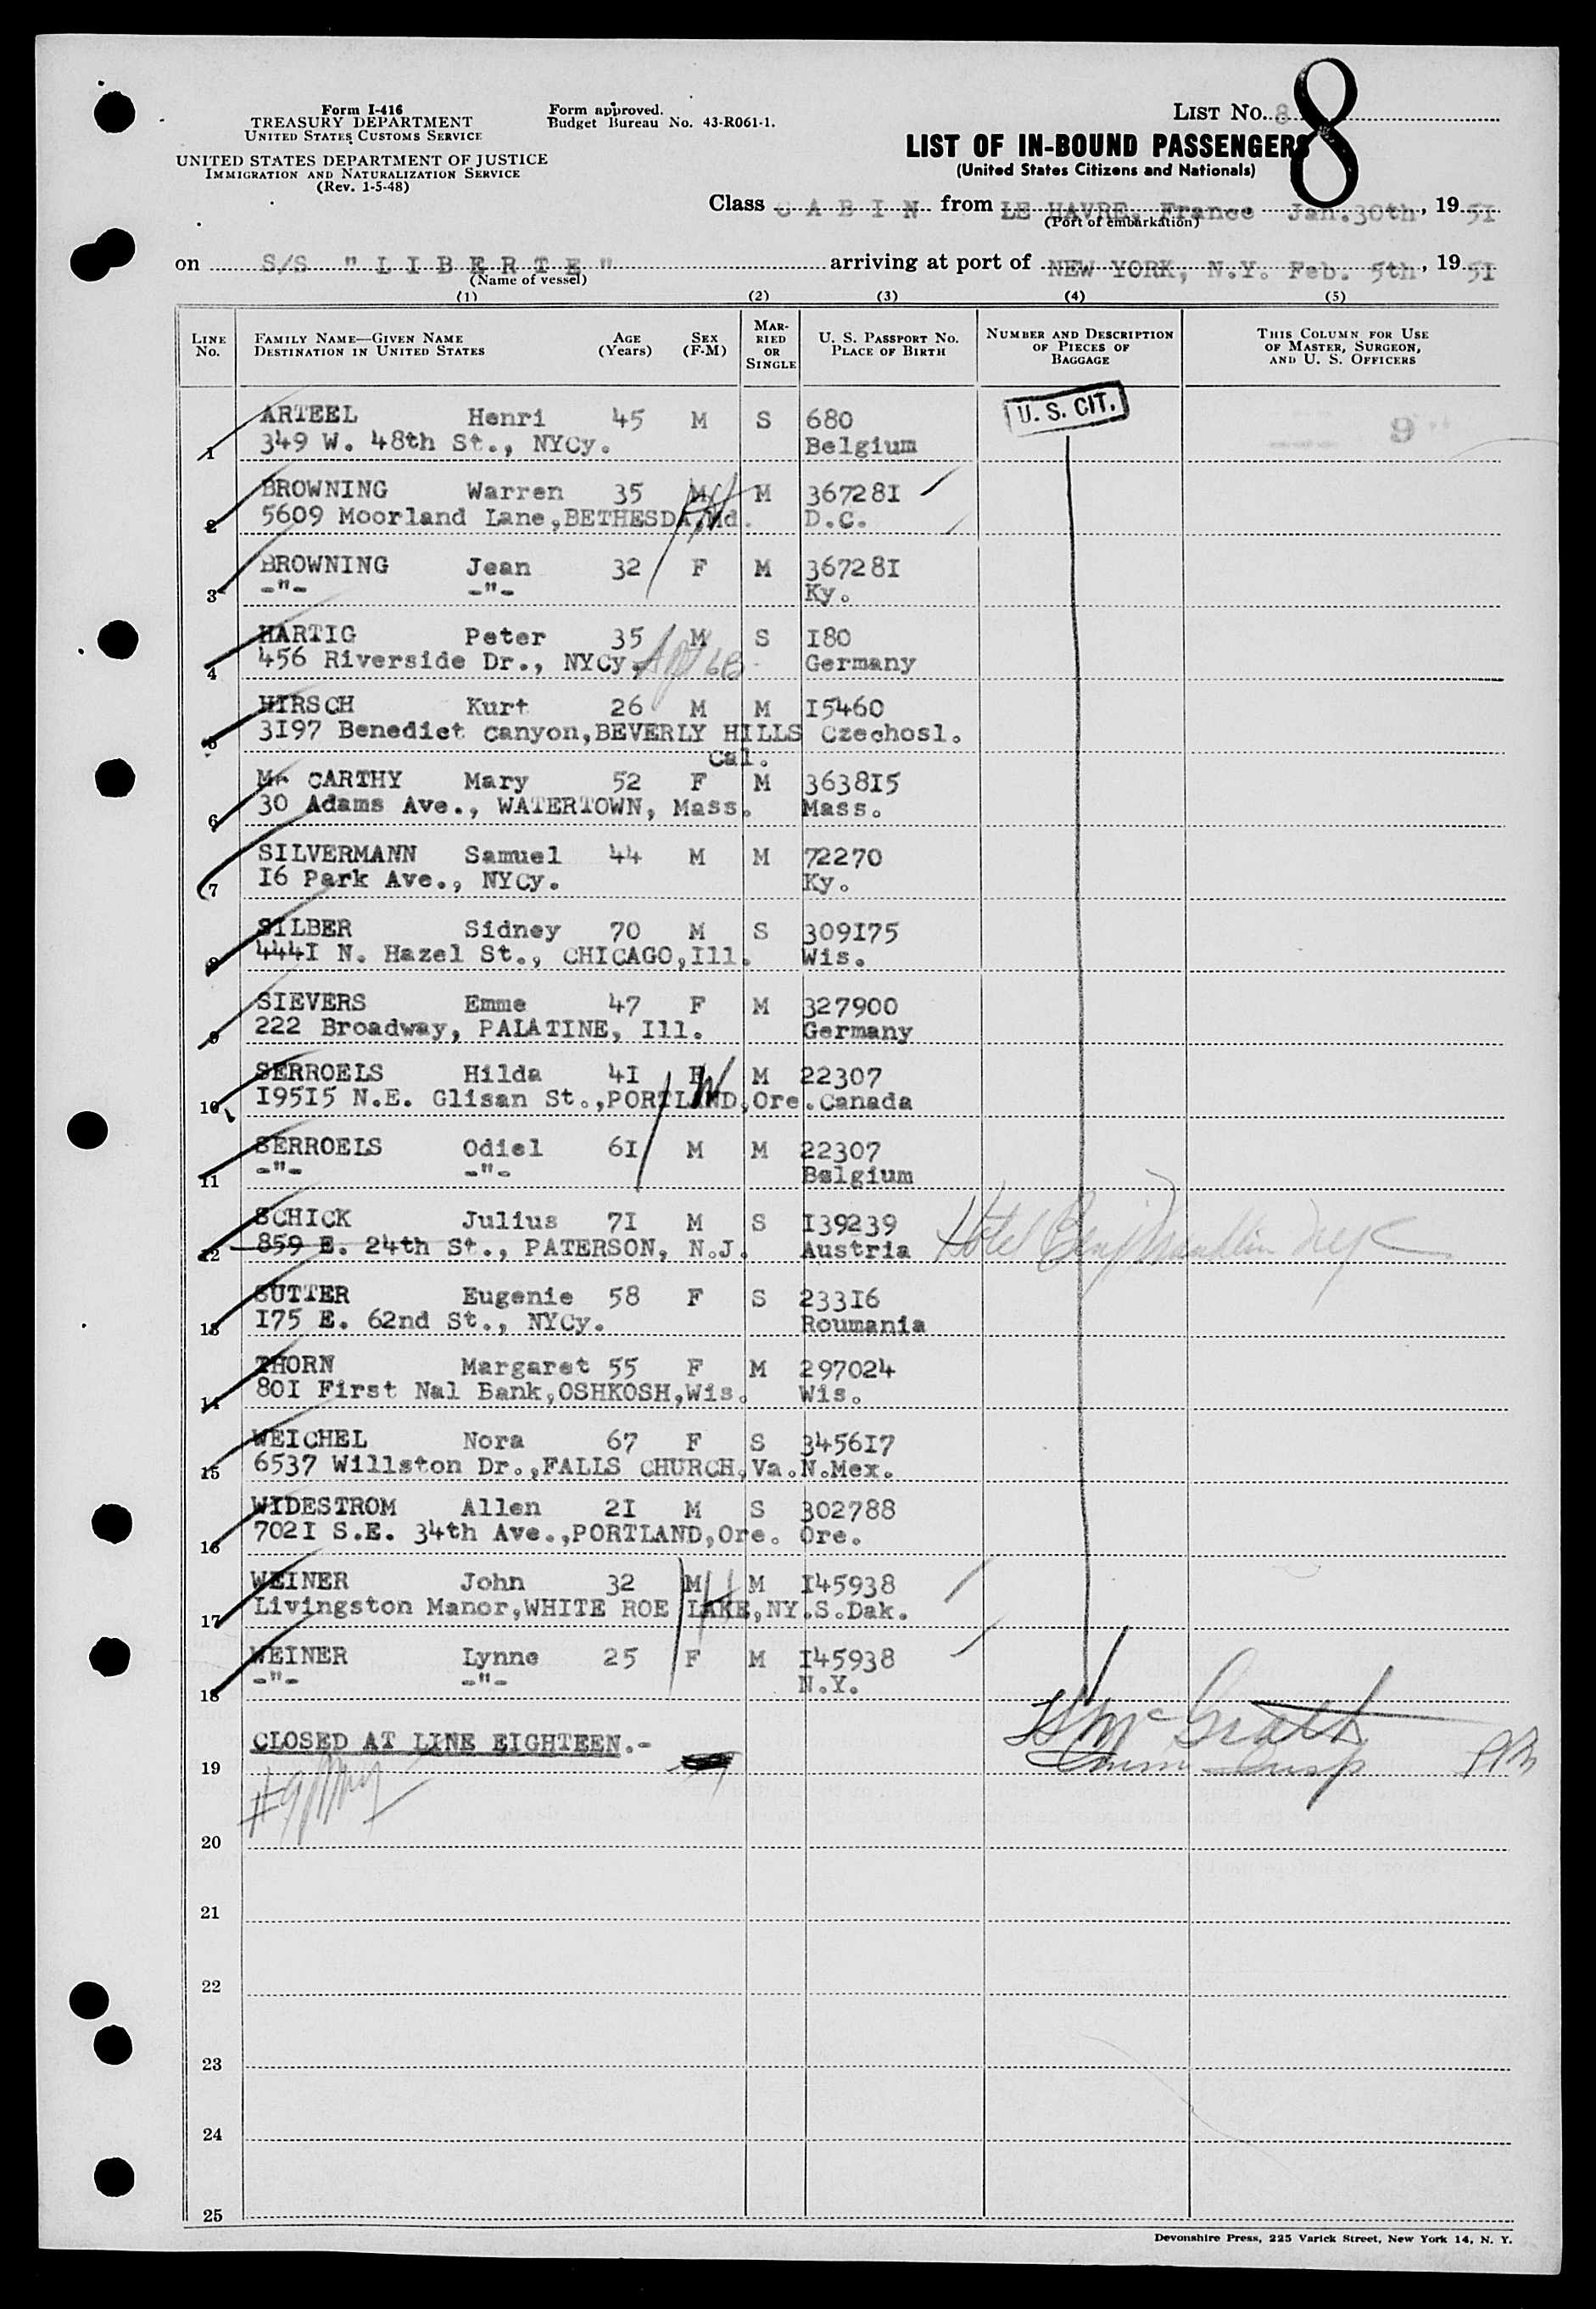 Form I-416
TREASURY DEPARTMENT
UNITED STATES CUSTOMS SERVICE
UNITED STATES DEPARTMENT OF JUSTICE
IMMIGRATION AND NATURALIZATION SERVICE
(Rev. 1-5-48)
Form approved.
Budget Bureau No. 43-R061-1.
LIST No. 8
8
LIST OF IN-BOUND PASSENGERS
(United States Citizens and Nationals)
Class C A B I N from LE HAVRE, France Jan.30th, 19 51
(Port of embarkation)
on S/S "L I B E R T E" arriving at port of NEW YORK, N.Y. Feb. 5th, 19 51
(Name of vessel)
(1) (2) (3) (4) (5)
LINE No. FAMILY NAME—GIVEN NAME DESTINATION IN UNITED STATES AGE (Years) SEX (F-M) MARRIED OR SINGLE U. S. PASSPORT NO. PLACE OF BIRTH NUMBER AND DESCRIPTION OF PIECES OF BAGGAGE THIS COLUMN FOR USE OF MASTER, SURGEON, AND U. S. OFFICERS
ARTEEL Henri 45 M S 680 U. S. CIT. 9
1 349 W. 48th St., NYCy. Belgium
BROWNING Warren 35 M M 367281
2 5609 Moorland Lane,BETHESDA,Md. D.C.
BROWNING Jean 32 F M 367281
3 -"- -"- Ky.
HARTIG Peter 35 M S I80
4 456 Riverside Dr., NYCy. Apt 6B Germany
HIRSCH Kurt 26 M M I5460
5 3I97 Benedict Canyon,BEVERLY HILLS Czechosl.
Cal.
Mc CARTHY Mary 52 F M 3638I5
6 30 Adams Ave., WATERTOWN, Mass. Mass.
SILVERMANN Samuel 44 M M 72270
7 I6 Park Ave., NYCy. Ky.
SILBER Sidney 70 M S 309I75
8 444I N. Hazel St., CHICAGO,Ill. Wis.
SIEVERS Emme 47 F M 327900
9 222 Broadway, PALATINE, Ill. Germany
SERROELS Hilda 4I F M 22307
10 I95I5 N.E. Glisan St.,PORTLAND,Ore. Canada
SERROELS Odiel 6I M M 22307
11 -"- -"- Belgium
SCHICK Julius 7I M S I39239
12 859 E. 24th St., PATERSON, N.J. Austria Hotel Benj Franklin
SUTTER Eugenie 58 F S 233I6
13 I75 E. 62nd St., NYCy. Roumania
THORN Margaret 55 F M 297024
14 80I First Nal Bank,OSHKOSH,Wis. Wis.
WEICHEL Nora 67 F S 3456I7
15 6537 Willston Dr.,FALLS CHURCH,Va. N.Mex.
WIDESTROM Allen 2I M S 302788
16 702I S.E. 34th Ave.,PORTLAND,Ore. Ore.
WEINER John 32 M M I45938
17 Livingston Manor,WHITE ROE LAKE,NY. S.Dak.
WEINER Lynne 25 F M I45938
18 -"- -"- N.Y.
CLOSED AT LINE EIGHTEEN.-
McGrath
19 Imm Insp
20
21
22
23
24
25
Devonshire Press, 225 Varick Street, New York 14, N. Y.